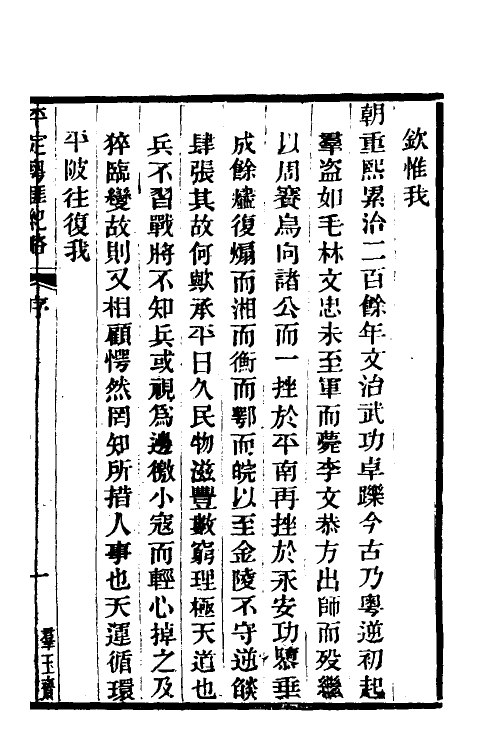 欽惟我
朝重熙累治二百餘年文治武功卓躒今古乃粵逆初起
羣盜如毛林文忠未至軍而薨李文恭方出師而歿繼
以周賽烏向諸公而一挫於平南再挫於永安功隳垂
成餘燼復煽而湘而衡而鄂而皖以至金陵不守逆燄
肆張其故何歟承平日久民物滋豐數窮理極天道也
兵不習戰將不知兵或視爲邊徼小寇而輕心掉之及
猝臨變故則又相顧愕然罔知所措人事也天運循環
平陂往復我
平定粵匪紀略 序 一 羣玉齋